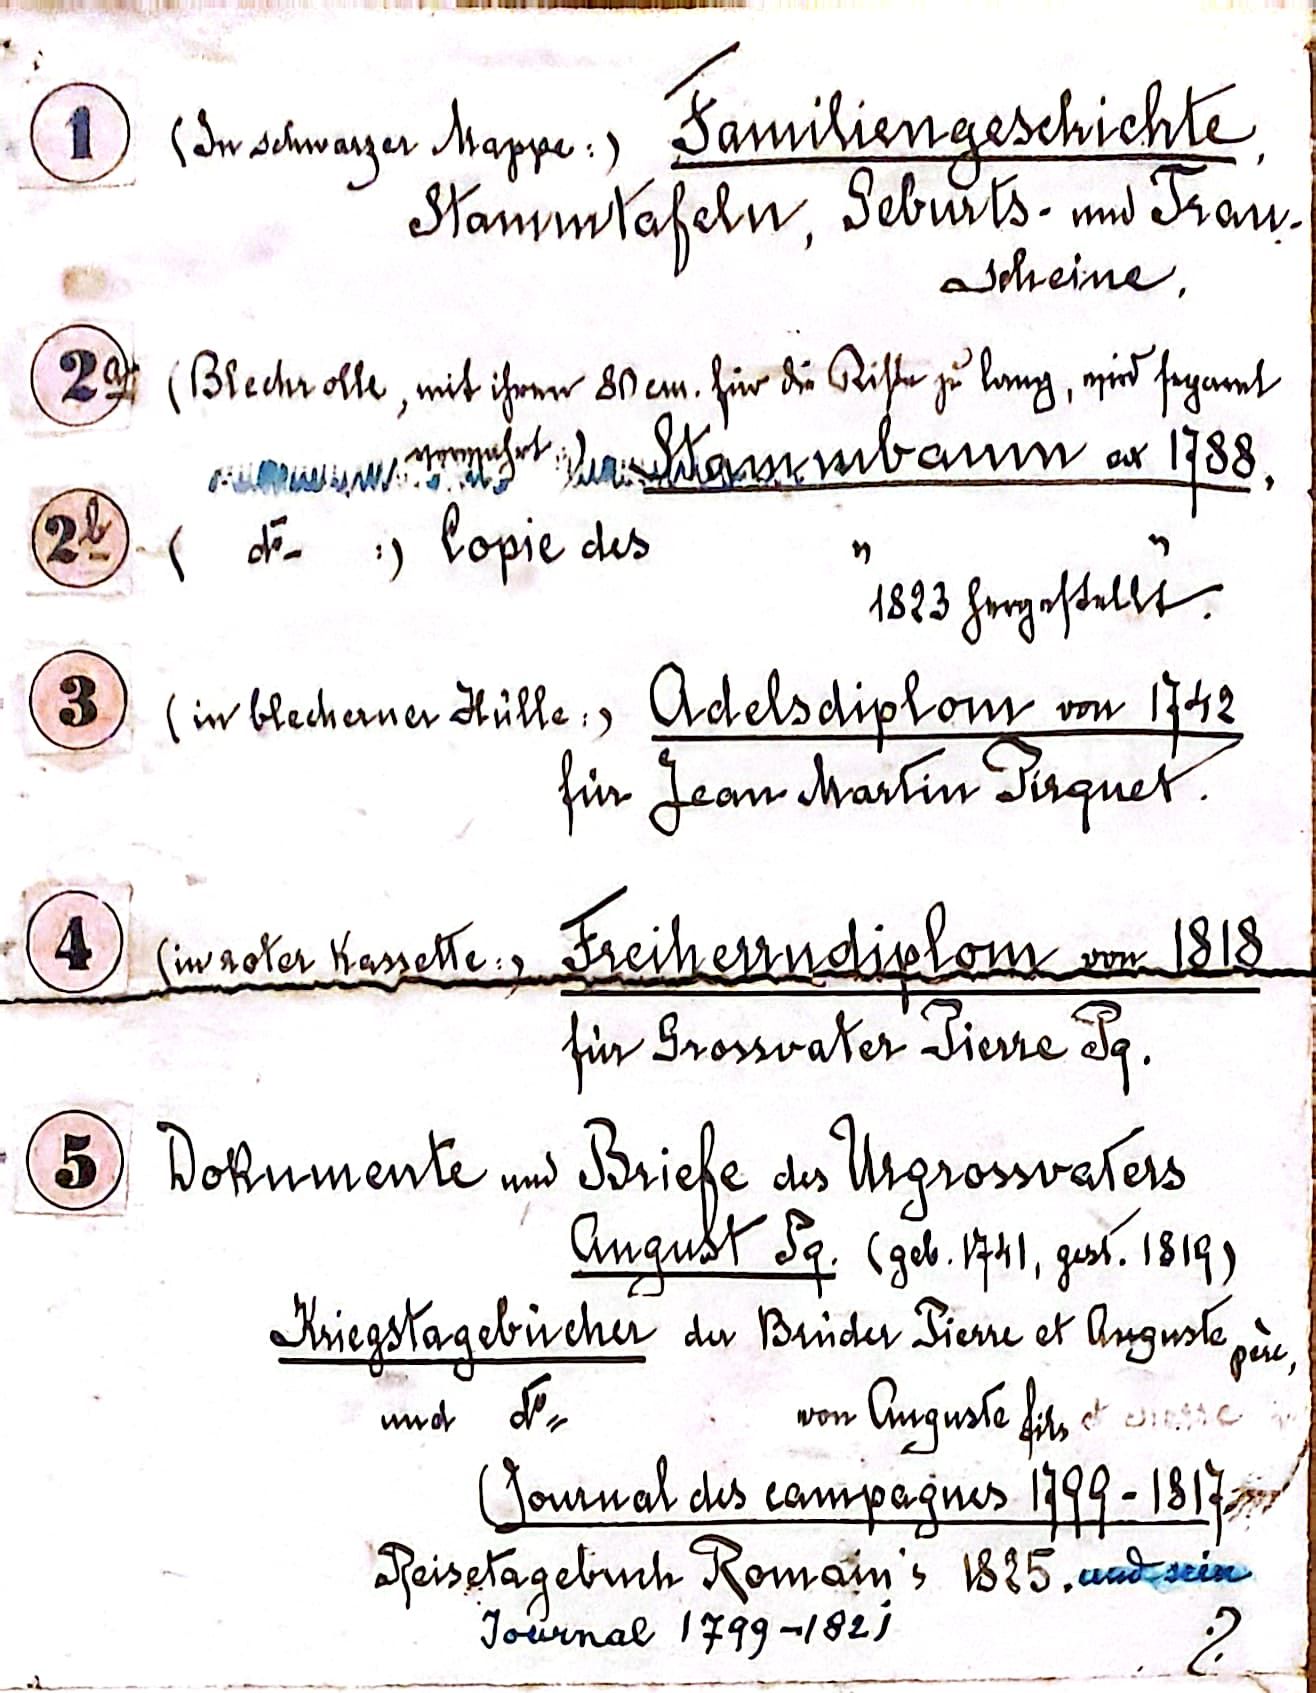 1 (In schwarzer Mappe:) Familiengeschichte,
Stammtafeln, Geburts- und Trau-
scheine.
2a (Blechrolle, mit ihren 80 cm. für die Kiste zu lang, wird separat
verwahrt Stammbaum ex 1788,
2b ( do- :) Copie des " "
1823 hergestellt.
3 (in blecherner Hülle:) Adelsdiplom von 1742
für Jean Martin Pirquet.
4 (in roter Kassette:) Freiherrndiplom von 1818
für Grossvater Pierre Pq.
5 Dokumente und Briefe des Urgrossvaters
August Pq. (geb. 1741, gest. 1819)
Kriegstagebücher der Brüder Pierre et Auguste père,
und do= von Auguste fils
(Journal des campagnes 1799-1817
Reisetagebuch Romain's 1825. und sein
Journal 1799-1821
?